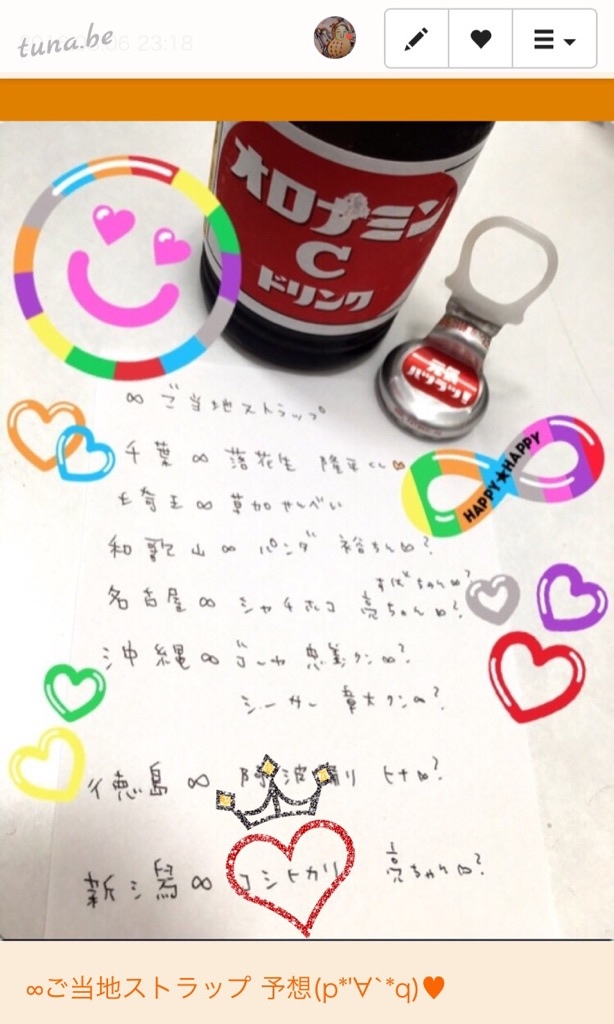 tuna.be
06 23:18
オロナミン
C
ドリンク
元気
ハツラツ!
∞ ご当地ストラップ
千葉 ∞ 落花生 隆平くん∞
埼玉 ∞ 草加せんべい
HAPPY★HAPPY
和歌山 ∞ パンダ 裕ちん∞?
すばちゃん∞?
名古屋 ∞ シャチホコ 亮ちゃん∞?
沖縄 ∞ ゴーヤ クン∞?
シーサー 章大クン∞?
徳島 ∞ 阿波踊り ヒナ∞?
新潟 ∞ コシヒカリ 亮ちゃん∞?
∞ご当地ストラップ 予想(p*'∀`*q)♥